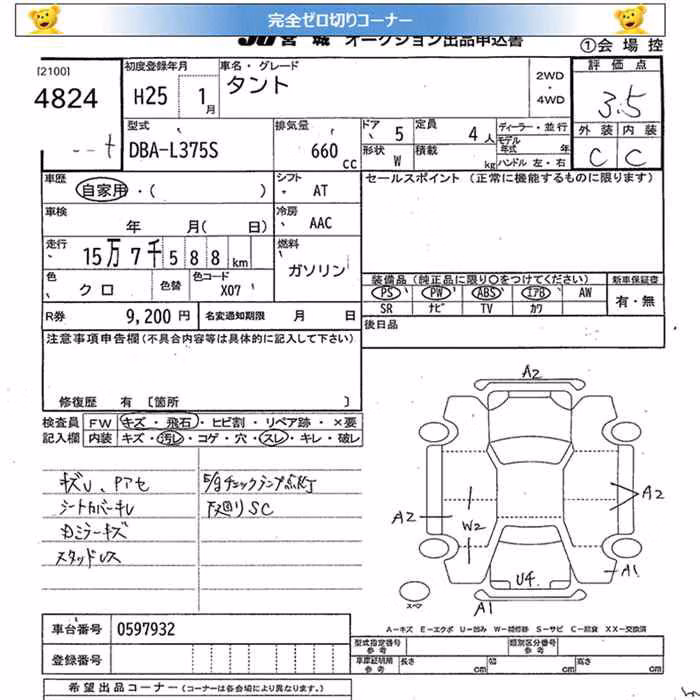 完全ゼロ切りコーナー
JU 宮城 オークション出品申込書
①会場控
[2100]
4824
初度登録年月
H25 1月
車名・グレード
タント
2WD・4WD
評価点
3.5
外装 内装
C C
型式
DBA-L375S
排気量
660 cc
ドア 5
定員 4人
ディーラー・並行
モデル年式 年
形状 W
積載 kg
ハンドル 左・右
車歴
自家用・( )
シフト
AT
セールスポイント (正常に機能するものに限ります)
車検
年 月( 日)
冷房
AAC
走行
15万7千588km
燃料
ガソリン
色
クロ
色替
色コード
X07
装備品 (純正品に限り○をつけてください)
新車保証書
PS PW ABS エアB AW
有・無
SR ナビ TV カワ
R券 9,200円
名変通知期限 月 日
後日品
注意事項申告欄(不具合内容等は具体的に記入して下さい)
修復歴 有 [箇所 ]
検査員記入欄
FW キズ・飛石・ヒビ割・リペア跡・×要
内装 キズ・汚レ・コゲ・穴・スレ・キレ・破レ
シートカバーキレ
Dミラーキズ
スタッドレス
下廻りSC
A2
A2
A2
W2
A1
U4
A1
スペア
A-キズ E-エクボ U-凹み W-補修跡 S-サビ C-腐食 XX-交換済
車台番号 0597932
登録番号
型式指定番号 参考
類別区分番号 参考
車庫証明用 参考
長さ cm 幅 cm 高さ cm
希望出品コーナー (コーナーは各会場により異なります。)